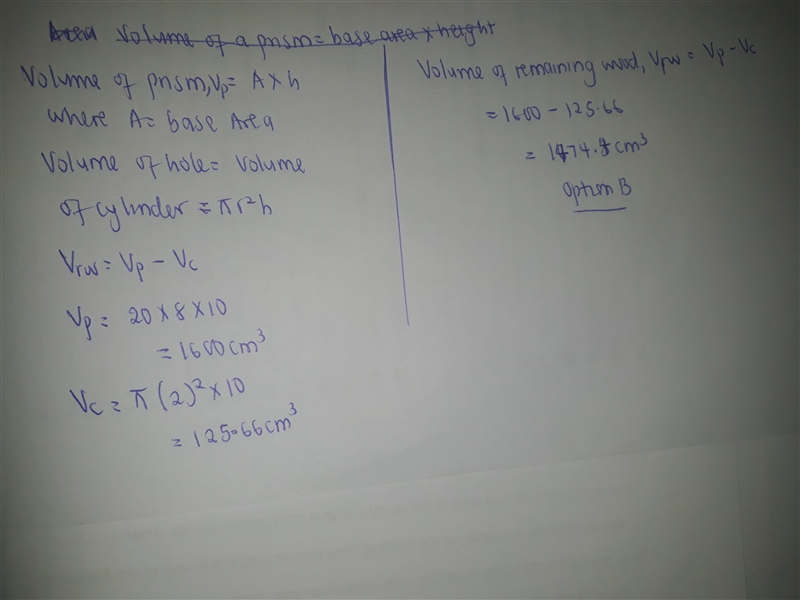 Area Volume of a prism = base area x height
Volume of prism, Vp = A x h
where A = base Area
Volume of hole = Volume
of cylinder = πr²h
Vrw = Vp - Vc
Vp = 20 x 8 x 10
= 1600cm³
Vc = π(2)² x 10
= 125.66cm³
Volume of remaining wood, Vrw = Vp - Vc
= 1600 - 125.66
= 1474.4cm³
Option B